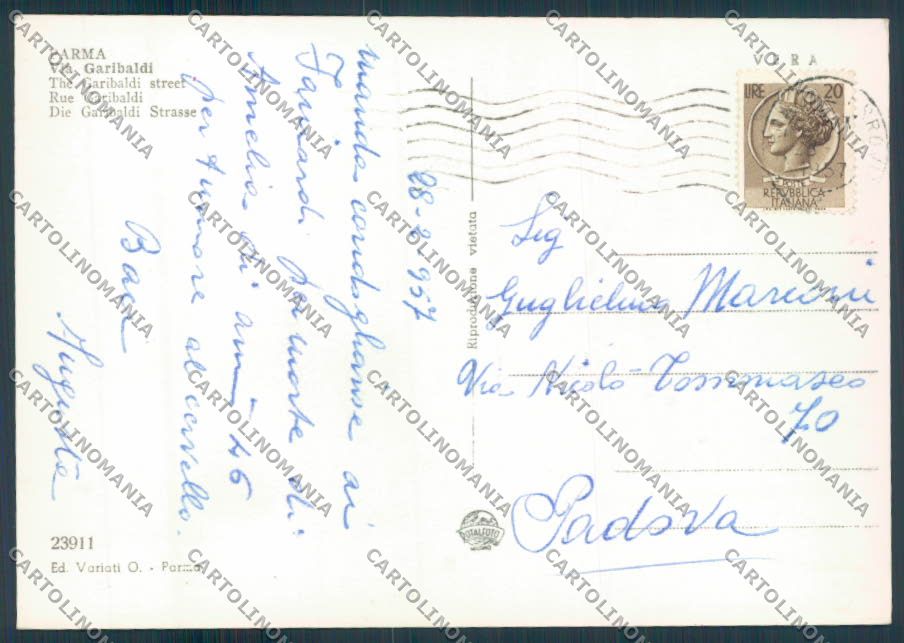 PARMA
Via Garibaldi
The Garibaldi street
Rue Garibaldi
Die Garibaldi Strasse
VERA
LIRE 20
REPVBBLICA
ITALIANA
28-2-957
manda condoglianse ai
per morte di
Amelia di anni 46
per tumore al cervello.
Baci
Augusta
Sig
Guglielmo Marconi
Via Nicolò Tommaseo
70
Padova
Riproduzione vietata
TOTALFOTO
23911
Ed. Variati O. - Parma
CARTOLINOMANIA